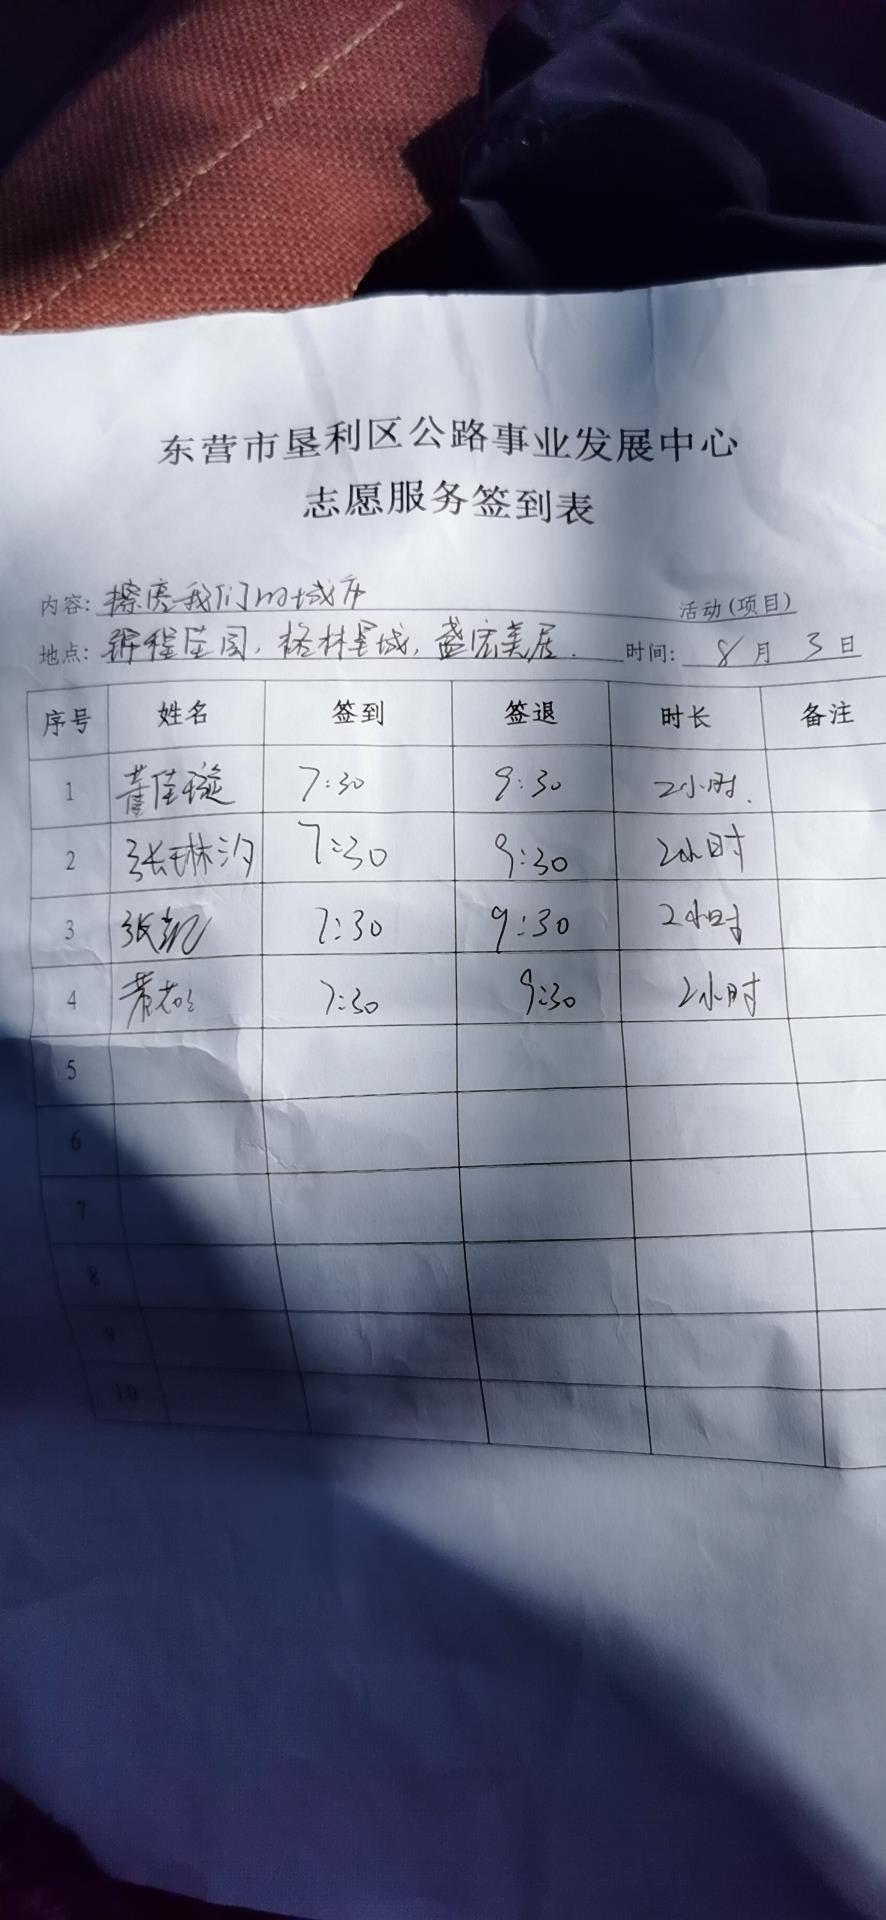 东营市垦利区公路事业发展中心
志愿服务签到表
内容: 擦亮我们的城市 活动(项目)
地点: 锦程花园, 格林星城, 盛宏美居. 时间: 8月3日
序号 姓名 签到 签退 时长 备注
1 董佳璇 7:30 9:30 2小时.
2 张琳汐 7:30 9:30 2小时
3 张凯 7:30 9:30 2小时
4 7:30 9:30 2小时
5
6
7
8
9
10